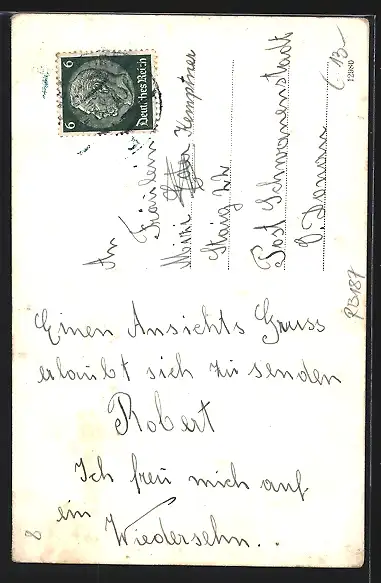 6 Deutsches Reich 6
An
Fräulein
Mizi Kemptner
Staig 22
Post Schwanenstadt
O. Donau
13.-
12380
PB187
Einen Ansichts Gruss
erlaubt sich zu senden
Robert
Ich freu mich auf
ein
Wiedersehn..
8